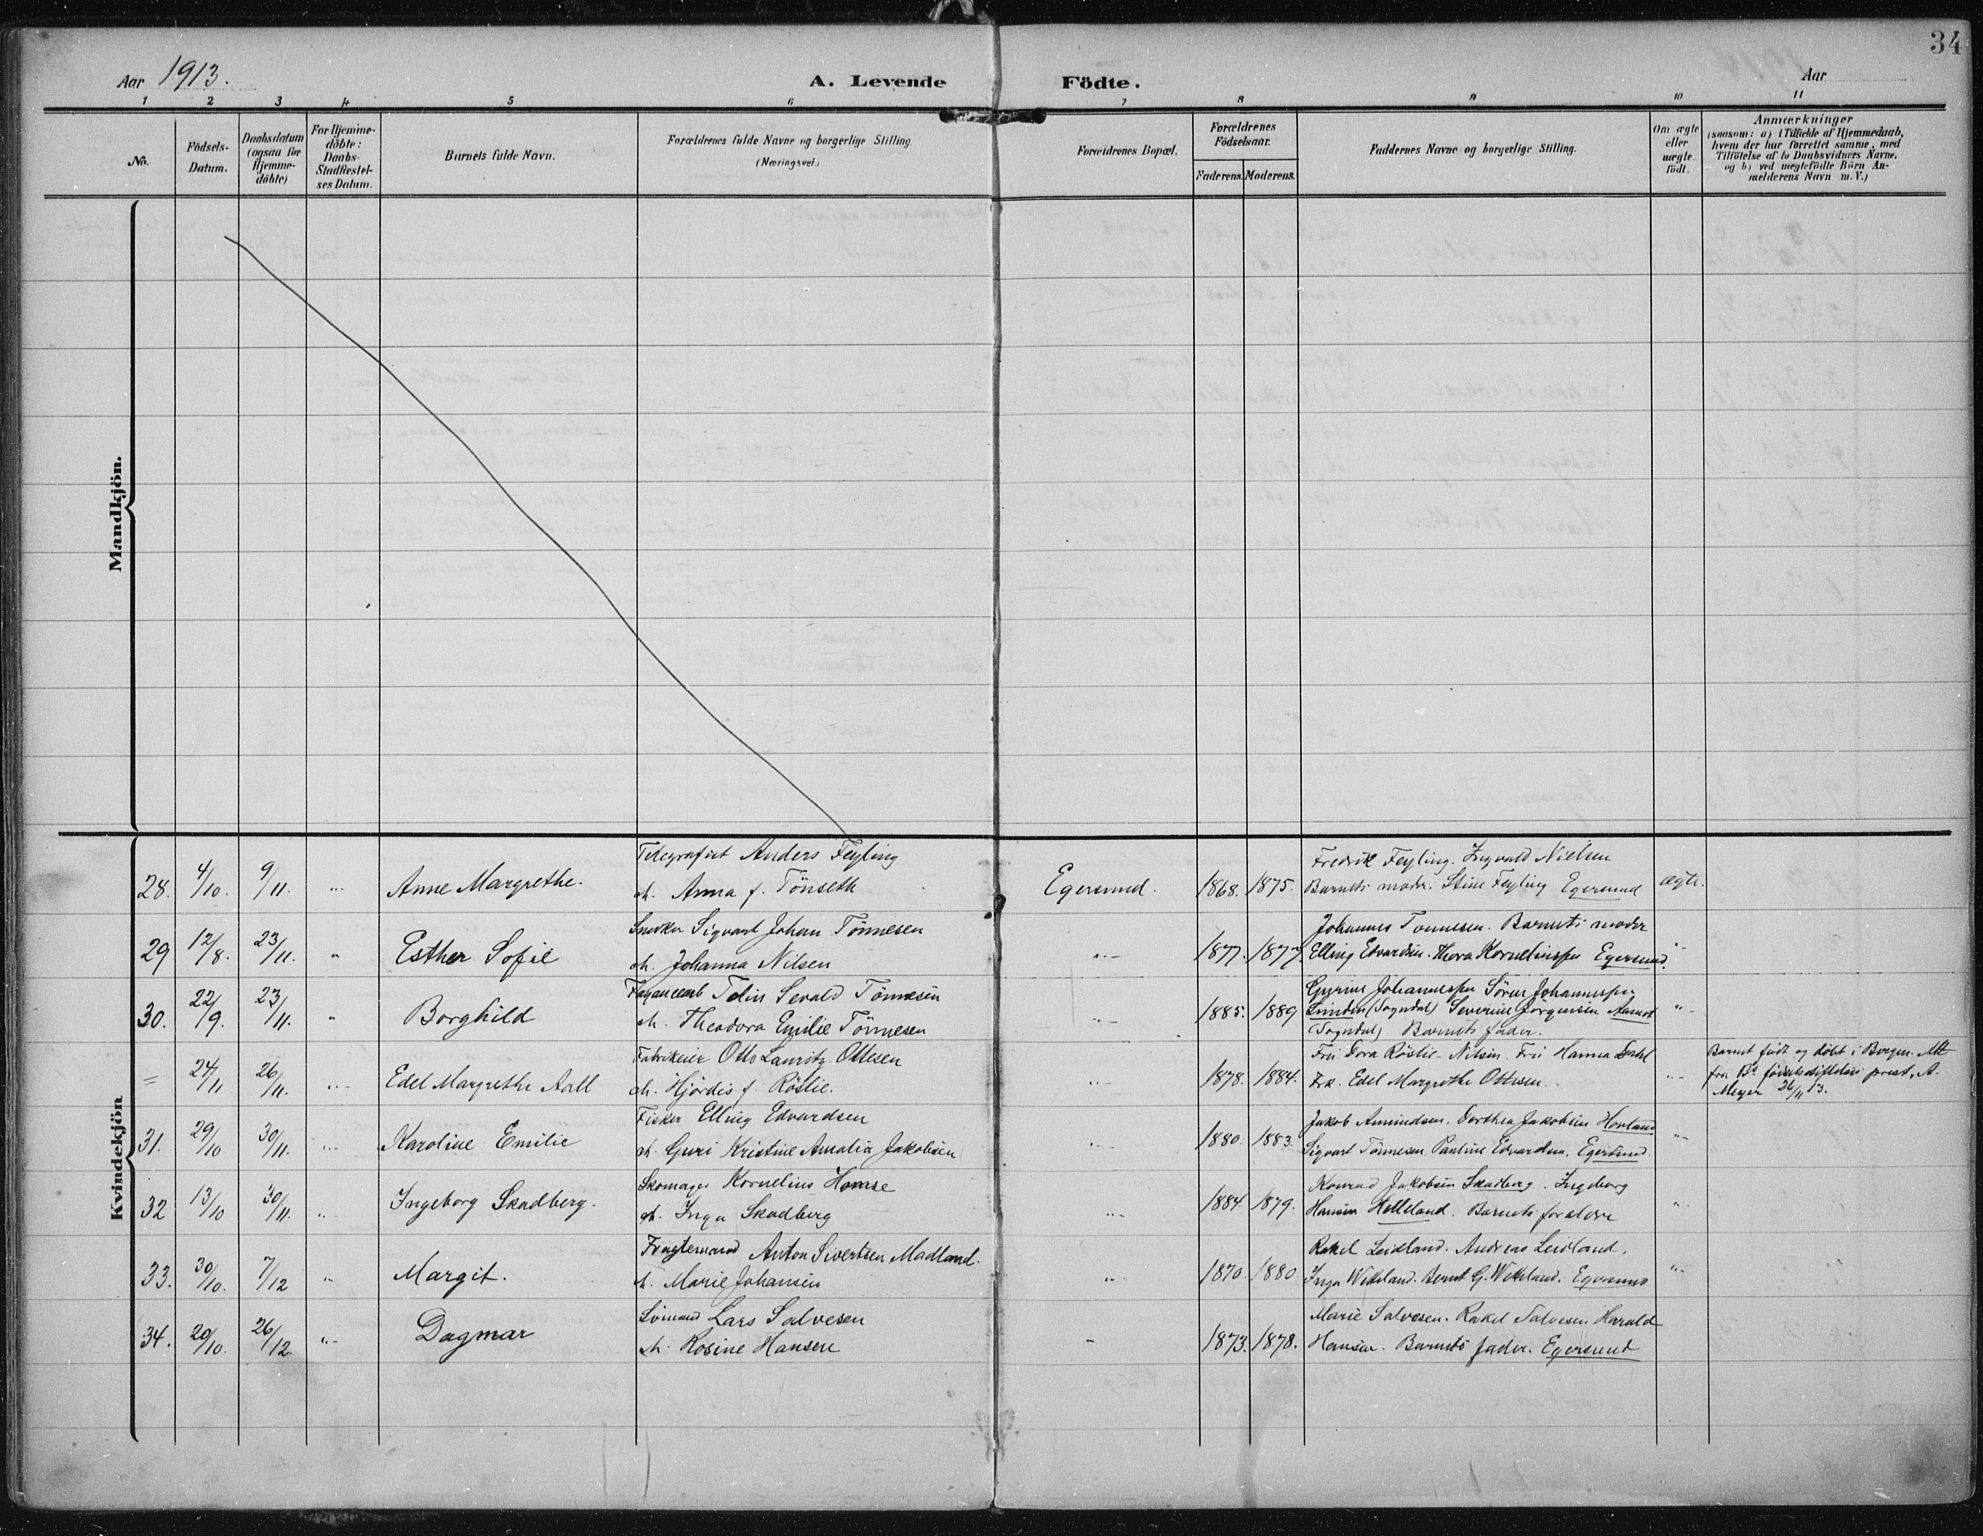 34
Aar 1913.
A. Levende Födte.
Aar
1 2 3 4 5 6 7 8 9 10 11
No.
Födsels-
Datum.
Daabsdatum
(ogsaa for
Hjemme-
döbte)
For Hjemme-
döbte:
Daabs-
Stadfæstel-
ses Datum.
Barnets fulde Navn.
Forældrenes fulde Navne og borgerlige Stilling
(Næringsvei.)
Forældrenes Bopæl.
Forældrenes
Födselsaar.
Faderens. Moderens.
Faddernes Navne og borgerlige Stilling.
Om ægte
eller
uægte
født.
Anmærkninger
(saasom: a) i Tilfælde af Hjemmedaab,
hvem der har forrettet samme, med
Tilföielse af to Daabsvidners Navne,
og b) ved uægtefödte Börn An-
melderens Navn m. V.)
Mandkjön.
Kvindekjön
Telegrafist Anders Feyling
28. 4/10. 9/11. Anne Margrethe. Anna f. Tönseth Egersund. 1868. 1875.
Fredrik Feyling. Ingvald Nielsen
Barnets moder. Stine Feyling Egersund ægte.
Snedker Sigvart Johan Tönnesen
29 12/8. 23/11. Esther Sofie Johanna Nilsen 1877. 1877.
Johannes Tonnesen. Barnets moder
Elling Edvardsen. Thora Egersund.
Tolin Sevald Tönnesen
30. 22/9. 23/11. Borghild Theodora Emilie Tönnesen 1885. 1889
Sören
(Sogndal) Severine Jörgensen
(Sogndal) Barnets fader.
Otto Lauritz Ottesen
= 24/11 26/11. Edel Margrethe Aall Hjördis f. Röslie. 1878. 1884.
Fru Dora Röslie. Nilsen. Fru Hanna Dahl
Frk. Edel Margrethe Ottesen.
Barnet födt og döbt i Bergen. Att
fra prest, A.
Meyer 26/11 13.
Fisker Elling Edvardsen
31. 29/10 30/11. Karoline Emilie Guri Kristine Amalia Jakobsen 1880. 1883.
Jakob Amundsen. Dorthea Jakobsen Hovland
Sigvart Tönnesen. Pauline Edvardsen. Egersund.
Skomager Kornelius Homse
32 13/10 30/11. Ingeborg Skadberg. Inga Skadberg 1884 1879.
Konrad Jakobsen Skadberg. Ingeborg
Hansen Helleland. Barnets forældre
Fragtemand Anton Sivertsen Madland.
33. 30/10. 7/12 Margit. Marie Johansen 1870 1880
Rakel Leidland. Andreas Leidland.
Inga Wetteland. Bernt G. Wetteland. Egersund
Sömand Lars Salvesen
34. 20/10. 26/12. Dagmar Rosine Hansen 1873. 1878.
Marie Salvesen. Rakel Salvesen Harald
Hansen. Barnets fader. Egersund